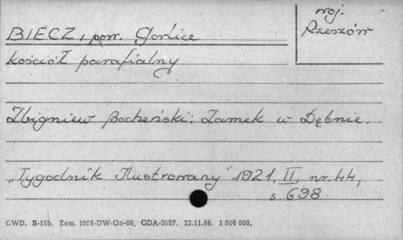 woj.
BIECZ, pow. Gorlice
Rzeszów
kościół parafialny
Zbigniew Bocheński: Zamek w Dębnie.
„Tygodnik Ilustrowany" 1921, II, nr. 44,
s. 698
CWD. B-15b. Zam. 1006-DW-On-66, GDA-3097. 22.11.66. 1 506 000.